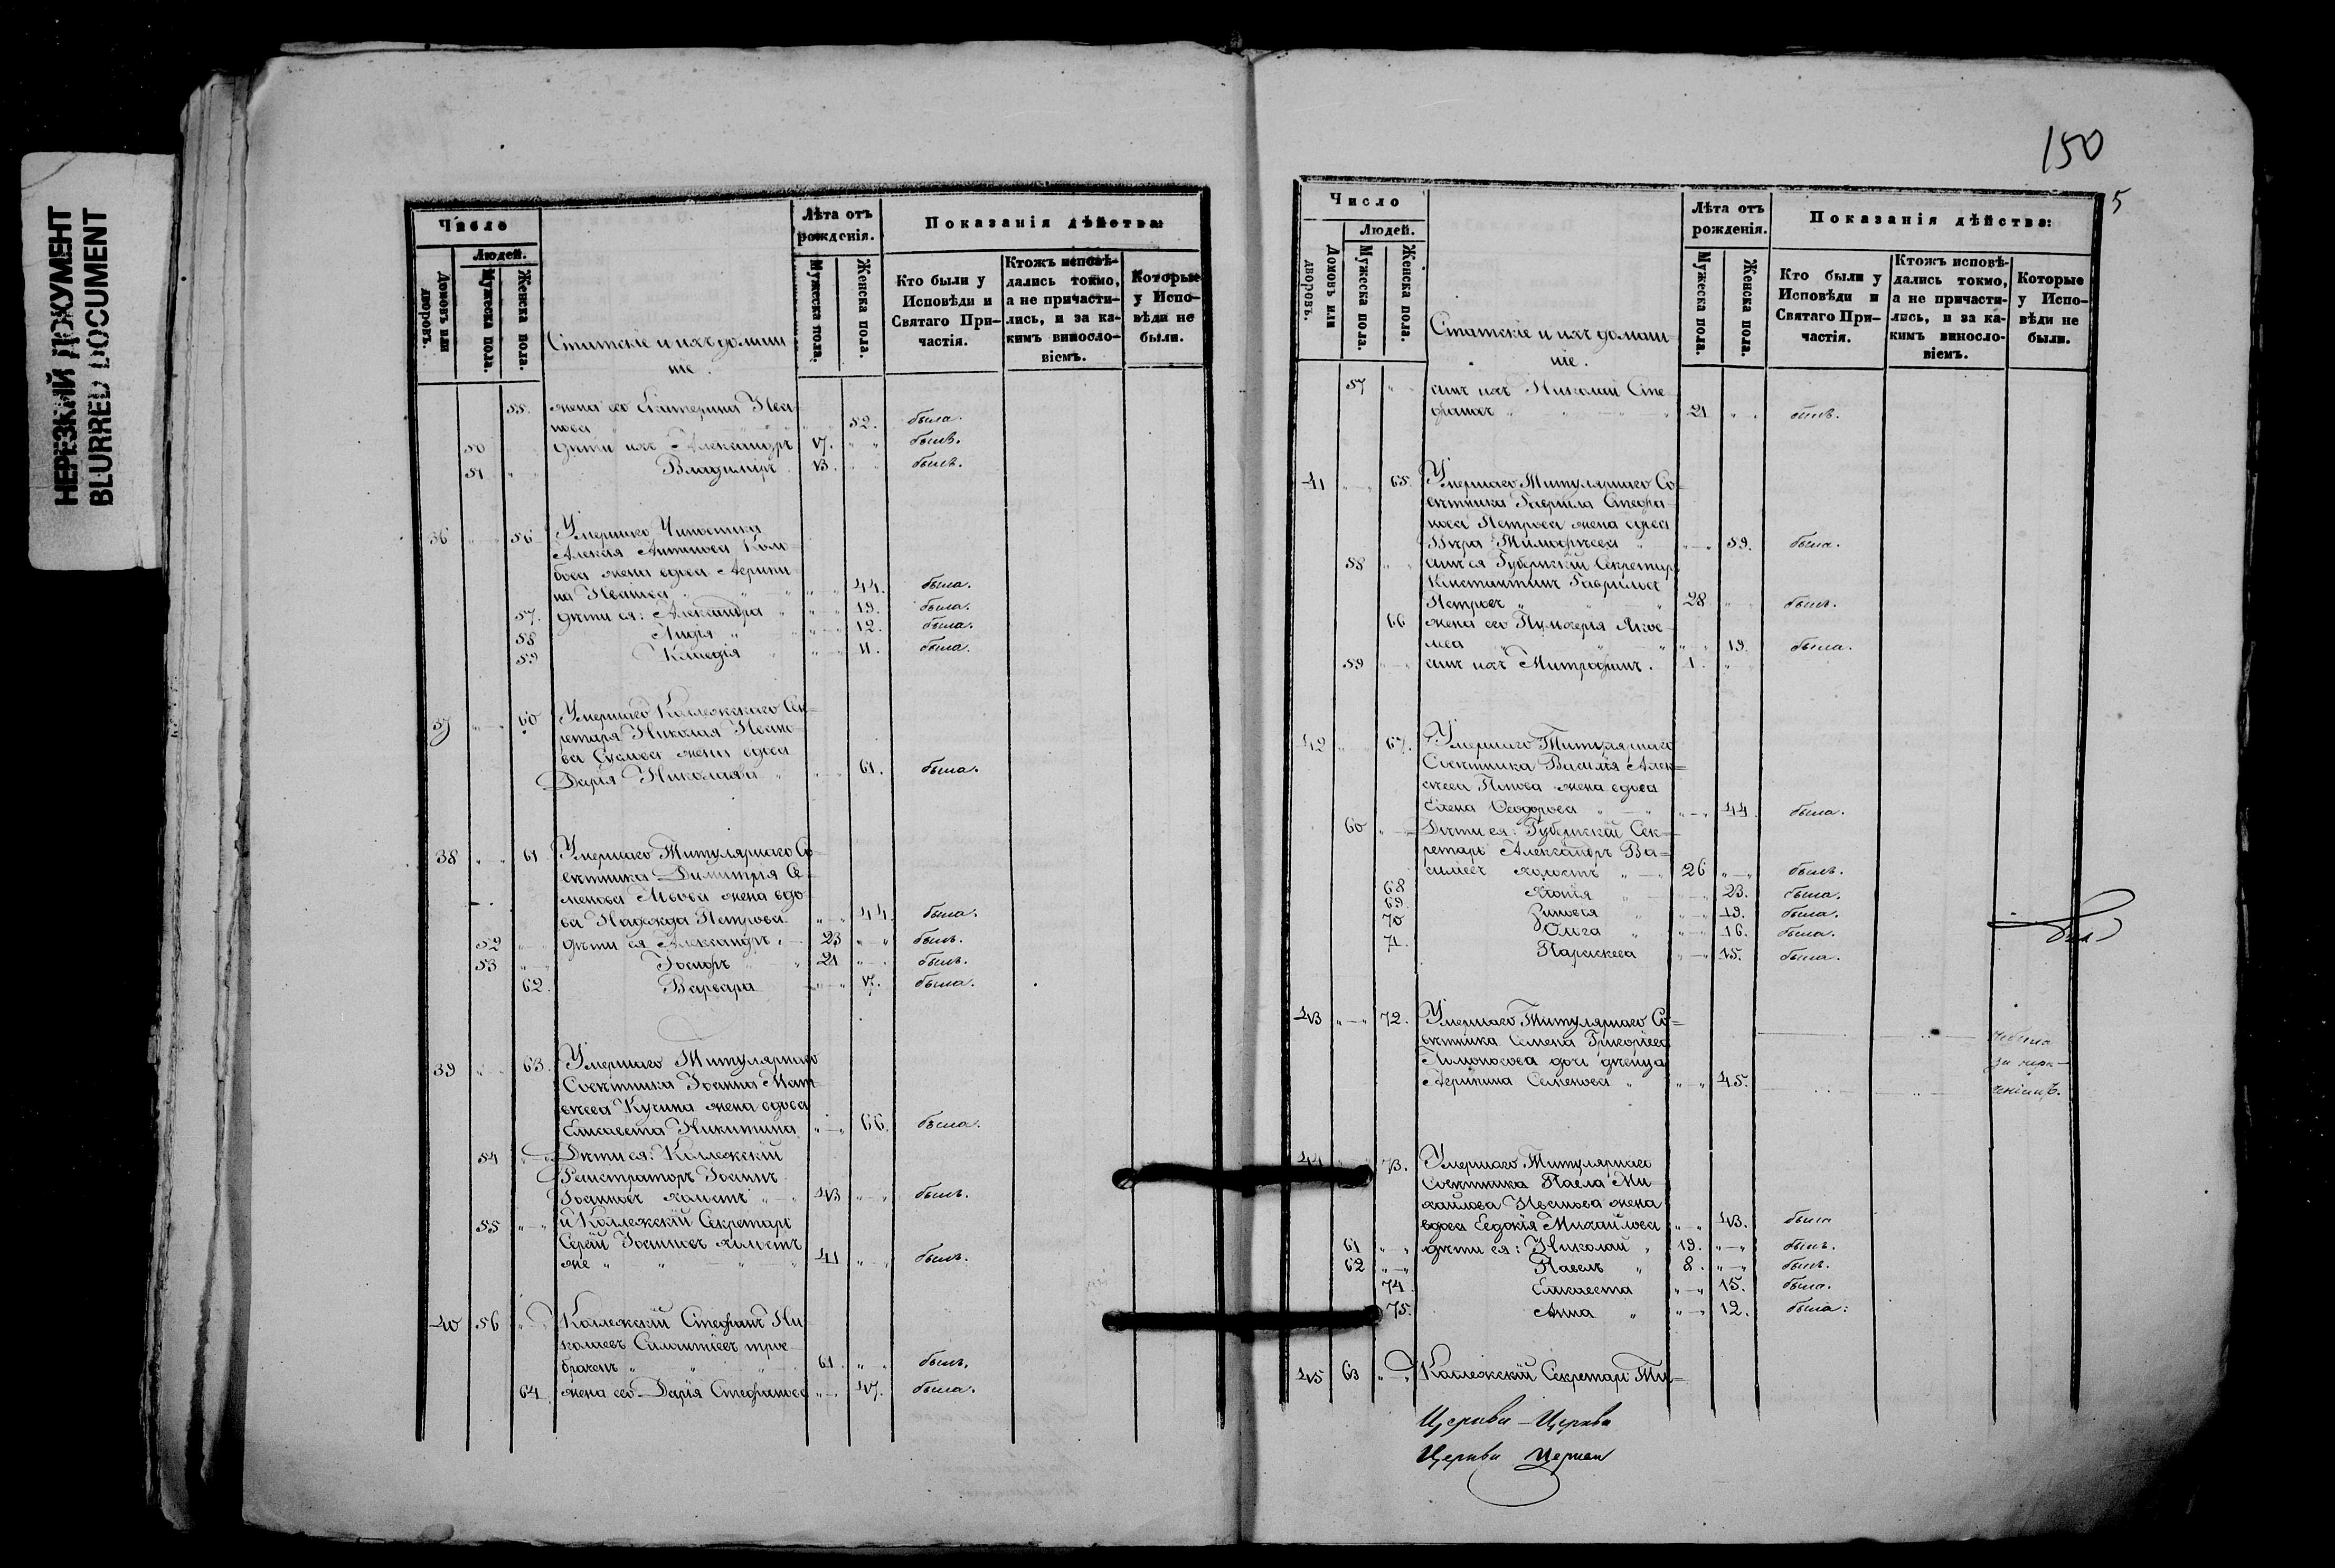 НЕРЕЗКИЙ ДОКУМЕНТ
BLURRED DOCUMENT
Число
Людей.
Домовъ или дворовъ.
Мужеска пола.
Женска пола.
Статскіе и ихъ домаш
ніе.
Лѣта отъ рожденія.
Мужеска пола.
Женска пола.
Показанія дѣйства:
Кто были у Исповѣди и Святаго При-частія.
Ктожъ исповѣ-дались токмо, а не причасти-лись, и за ка-кимъ винносло-віемъ.
Которые у Испо-вѣди не были.
55. жена его Екатерина Ива
нова 52. была.
50 дѣти ихъ Александръ 17. былъ.
51 Владиміръ 13. былъ.
36 56 Умершаго Чиновника
Алексія
жена вдова
44. была.
57. дѣти ея: Александра 19. была.
58 Лидія 12. была.
59 Клавдія 11. была.
37 60 Умершаго Коллежскаго Сек=
ретаря Николая Ивано
ва жена вдова
Дарія Николаева 61. была.
38 61 Умершаго Титулярнаго Со=
вѣтника Димитрія Се
менова Львова жена вдо
ва Надежда Петрова 44. была.
52 дѣти ея Александръ 23 былъ.
53 21 былъ.
62. Варвара 17. была.
39 63. Умершаго Титулярнаго
Совѣтника Іоанна Мат
вѣева Кучина жена вдова
Елисавета Никитина 66. была.
54 Дѣти ея: Коллежскій
Регистраторъ Іоаннъ
Іоанновъ холостъ 43 былъ.
55 и Коллежскій Секретарь
Сергій Іоанновъ холостъ
же 41 былъ.
40 56 Коллежскій Стефанъ Ни
колаевъ трое
браченъ 61. былъ.
64. жена его Дарія Стефанова 47. была.
150
5
Число
Людей.
Домовъ или дворовъ.
Мужеска пола.
Женска пола.
Статскіе и ихъ домаш
ніе.
Лѣта отъ рожденія.
Мужеска пола.
Женска пола.
Показанія дѣйства:
Кто были у Исповѣди и Святаго При-частія.
Ктожъ исповѣ-дались токмо, а не причасти-лись, и за ка-кимъ винносло-віемъ.
Которые у Испо-вѣди не были.
57 сынъ ихъ Николай Сте
фановъ 21 былъ.
41 65. Умершаго Титулярнаго Со=
вѣтника Гавріила Стефа
нова Петрова жена вдова
Вѣра Тимофѣева 59. была.
58 сынъ ея Губернскій Секретарь
Константинъ Гавриловъ
Петровъ 28 былъ.
66 жена его Пульхерія Яков
лева 19. была.
59 сынъ ихъ Митрофанъ. 1.
42 67. Умершаго Титулярнаго
Совѣтника Василія Алек=
сѣева Попова жена вдова
Елена Феодорова 44. была.
60 Дѣти ея: Губернскій Сек=
ретарь Александръ Ва=
сильевъ холостъ 26 былъ.
68 23. была.
69. Зиновія 19. была.
70 Ольга 16. была.
71. Параскева 15. была.
43 72. Умершаго Титулярнаго Со=
вѣтника Семена Григорьева
Ломоносова дочь дѣвица
Семенова 45.
небыла
за нера-
44 73. Умершаго Титулярнаго
Совѣтника Павла Ми
хайлова Иванова жена
вдова Евдокія Михайлова 43. была
61 дѣти ея: Николай 19. былъ.
62 Павелъ 8. былъ.
74 Елисавета 15. была.
75. Анна 12. была.
45 63 Коллежскій Секретарь Ти=
Церкви - Церкви
Церкви